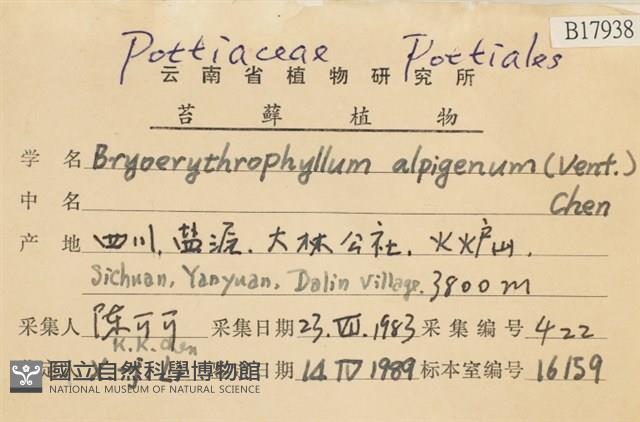 B17938
Pottiaceae Pottiales
云南省植物研究所
苔藓植物
学名 Bryoerythrophyllum alpigenum (Vent.)
中名 Chen
产地 四川, 盐源, 大林公社, 火炉山,
Sichuan, Yanyuan, Dalin Village. 3800m
采集人 陈可可 采集日期 23.VII.1983 采集编号 422
K.K. Chen
日期 14 IV 1989 标本室编号 16159
國立自然科學博物館
NATIONAL MUSEUM OF NATURAL SCIENCE